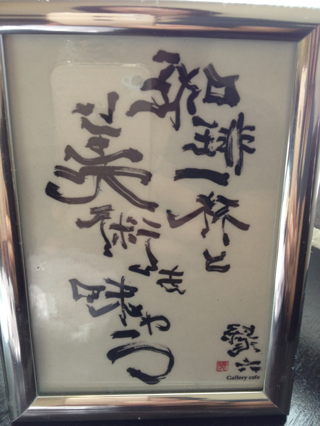 珈琲一杯と
美術を味わう
Gallery cafe